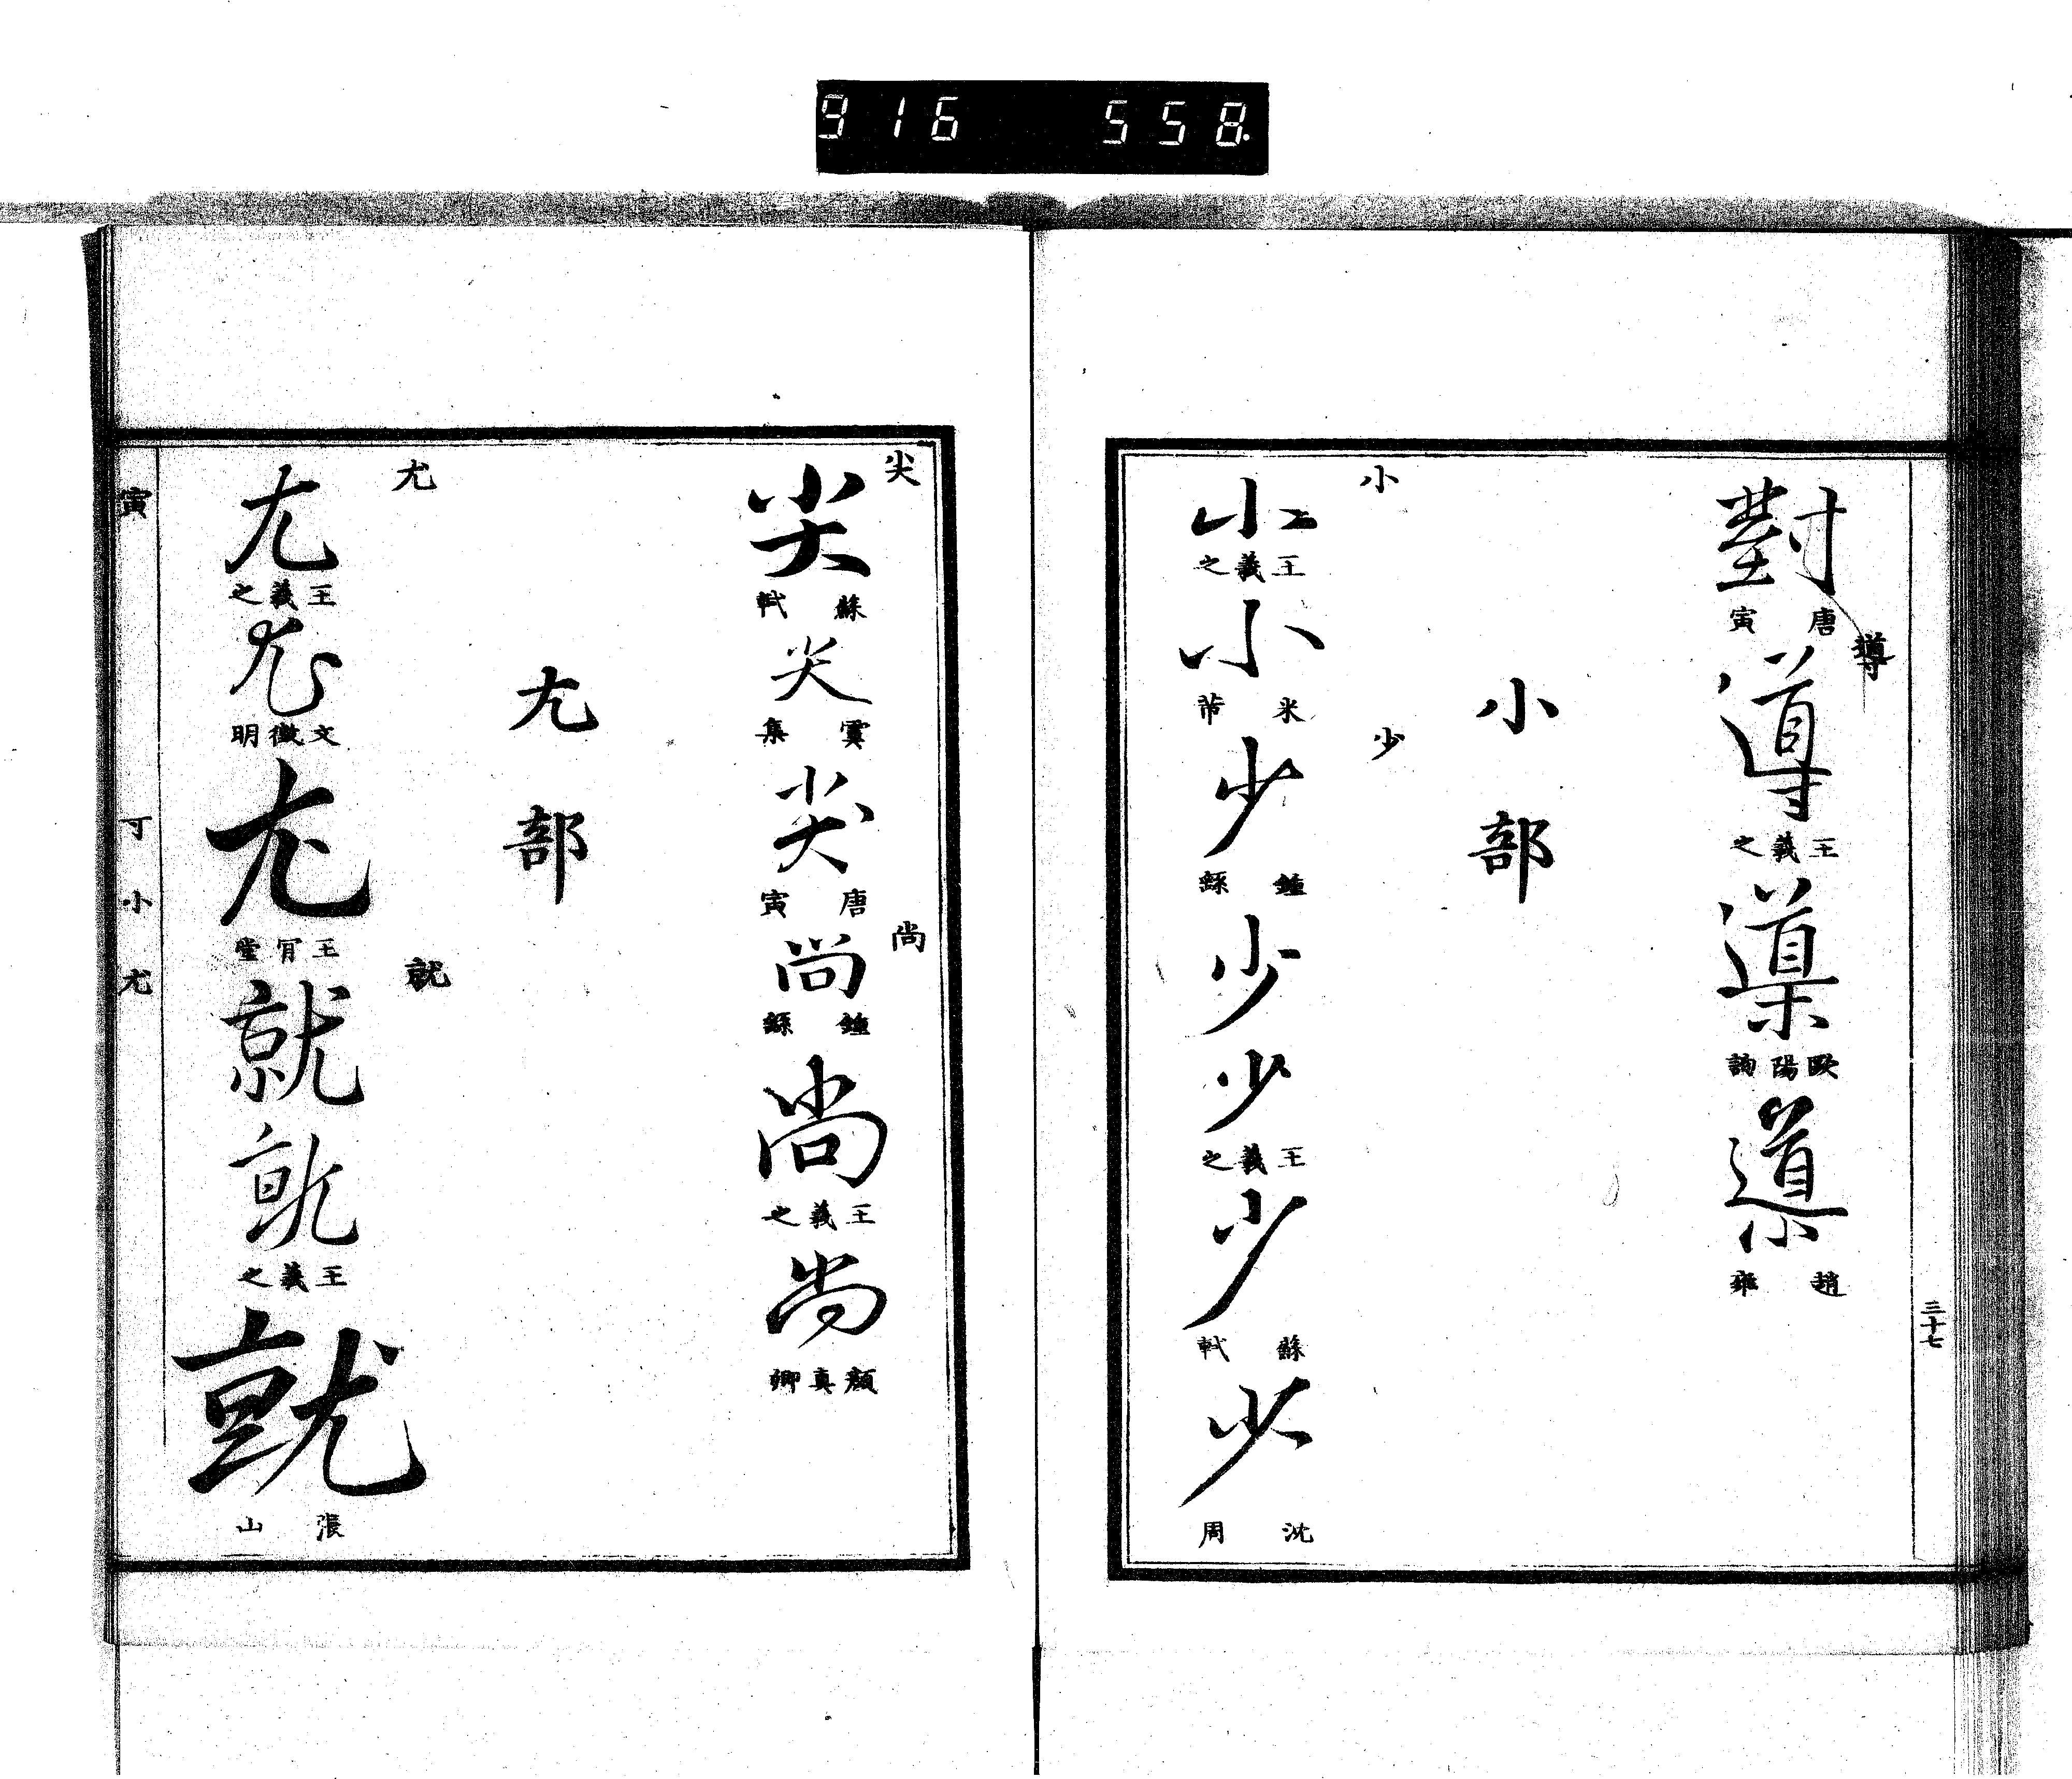 916 558
對
唐寅
導
導
王羲之
導
歐陽詢
導
趙雍
三十七
小部
小
小
王羲之
小
米芾
少
少
鍾繇
少
少
王羲之
少
蘇軾
少
沈周
尖
尖
蘇軾
尖
虞集
尖
唐寅
尚
尚
鍾繇
尚
王羲之
尚
顏真卿
尢部
尤
尤
王羲之
尤
文徵明
尤
王肯堂
就
就
就
王羲之
就
張
山
寅
寸小尢